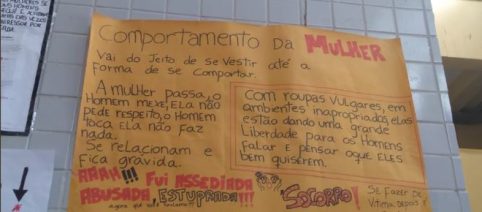 Comportamento da MULHER
Vai do Jeito de se Vestir até a
forma de se comportar.
A mulher passa, o
Homem mexe, ela não
pede respeito, o Homem
toca ela não faz
nada.
Se relacionam e
fica grávida.
Com roupas vulgares, em
ambientes inapropriados, elas
estão dando uma grande
Liberdade para os Homens
falar e pensar o que eles
bem quiserem.
AAAH!!! Fui ASSEDIADA
ABUSADA, ESTUPRADA!!!
SOCORRO!
Se fazer de
vítima depois é